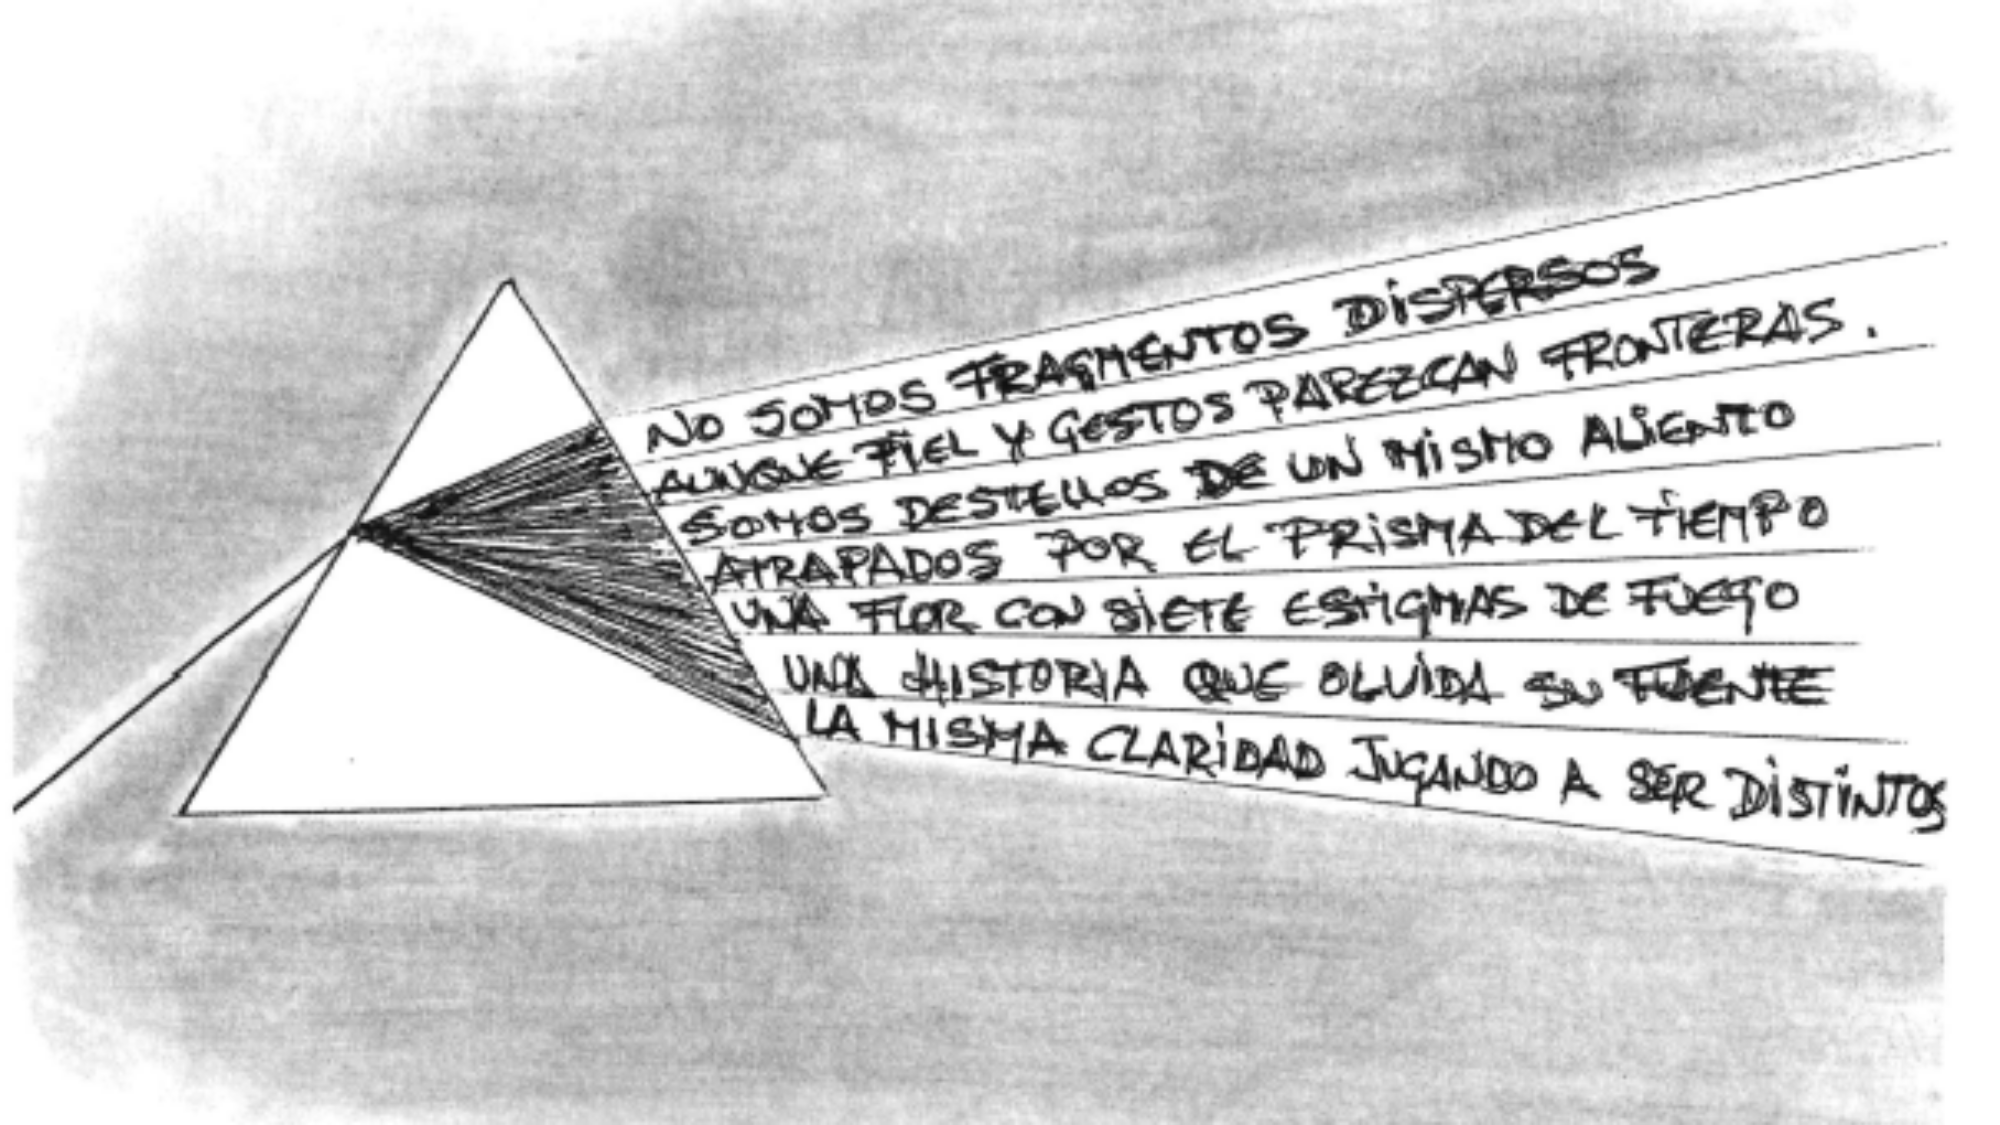 NO SOMOS FRAGMENTOS DISPERSOS
AUNQUE PIEL Y GESTOS PAREZCAN FRONTERAS.
SOMOS DESTELLOS DE UN MISMO ALIENTO
ATRAPADOS POR EL PRISMA DEL TIEMPO
UNA FLOR CON SIETE ESTIGMAS DE FUEGO
UNA HISTORIA QUE OLVIDA SU FUENTE
LA MISMA CLARIDAD JUGANDO A SER DISTINTOS